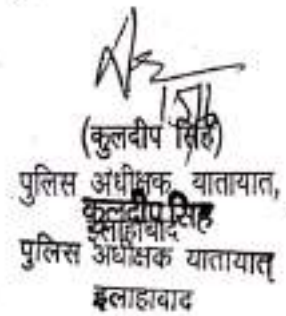 (कुलदीप सिंह)
पुलिस अधीक्षक, यातायात,
इलाहाबाद
कुलदीप सिंह
पुलिस अधीक्षक यातायात्
इलाहाबाद